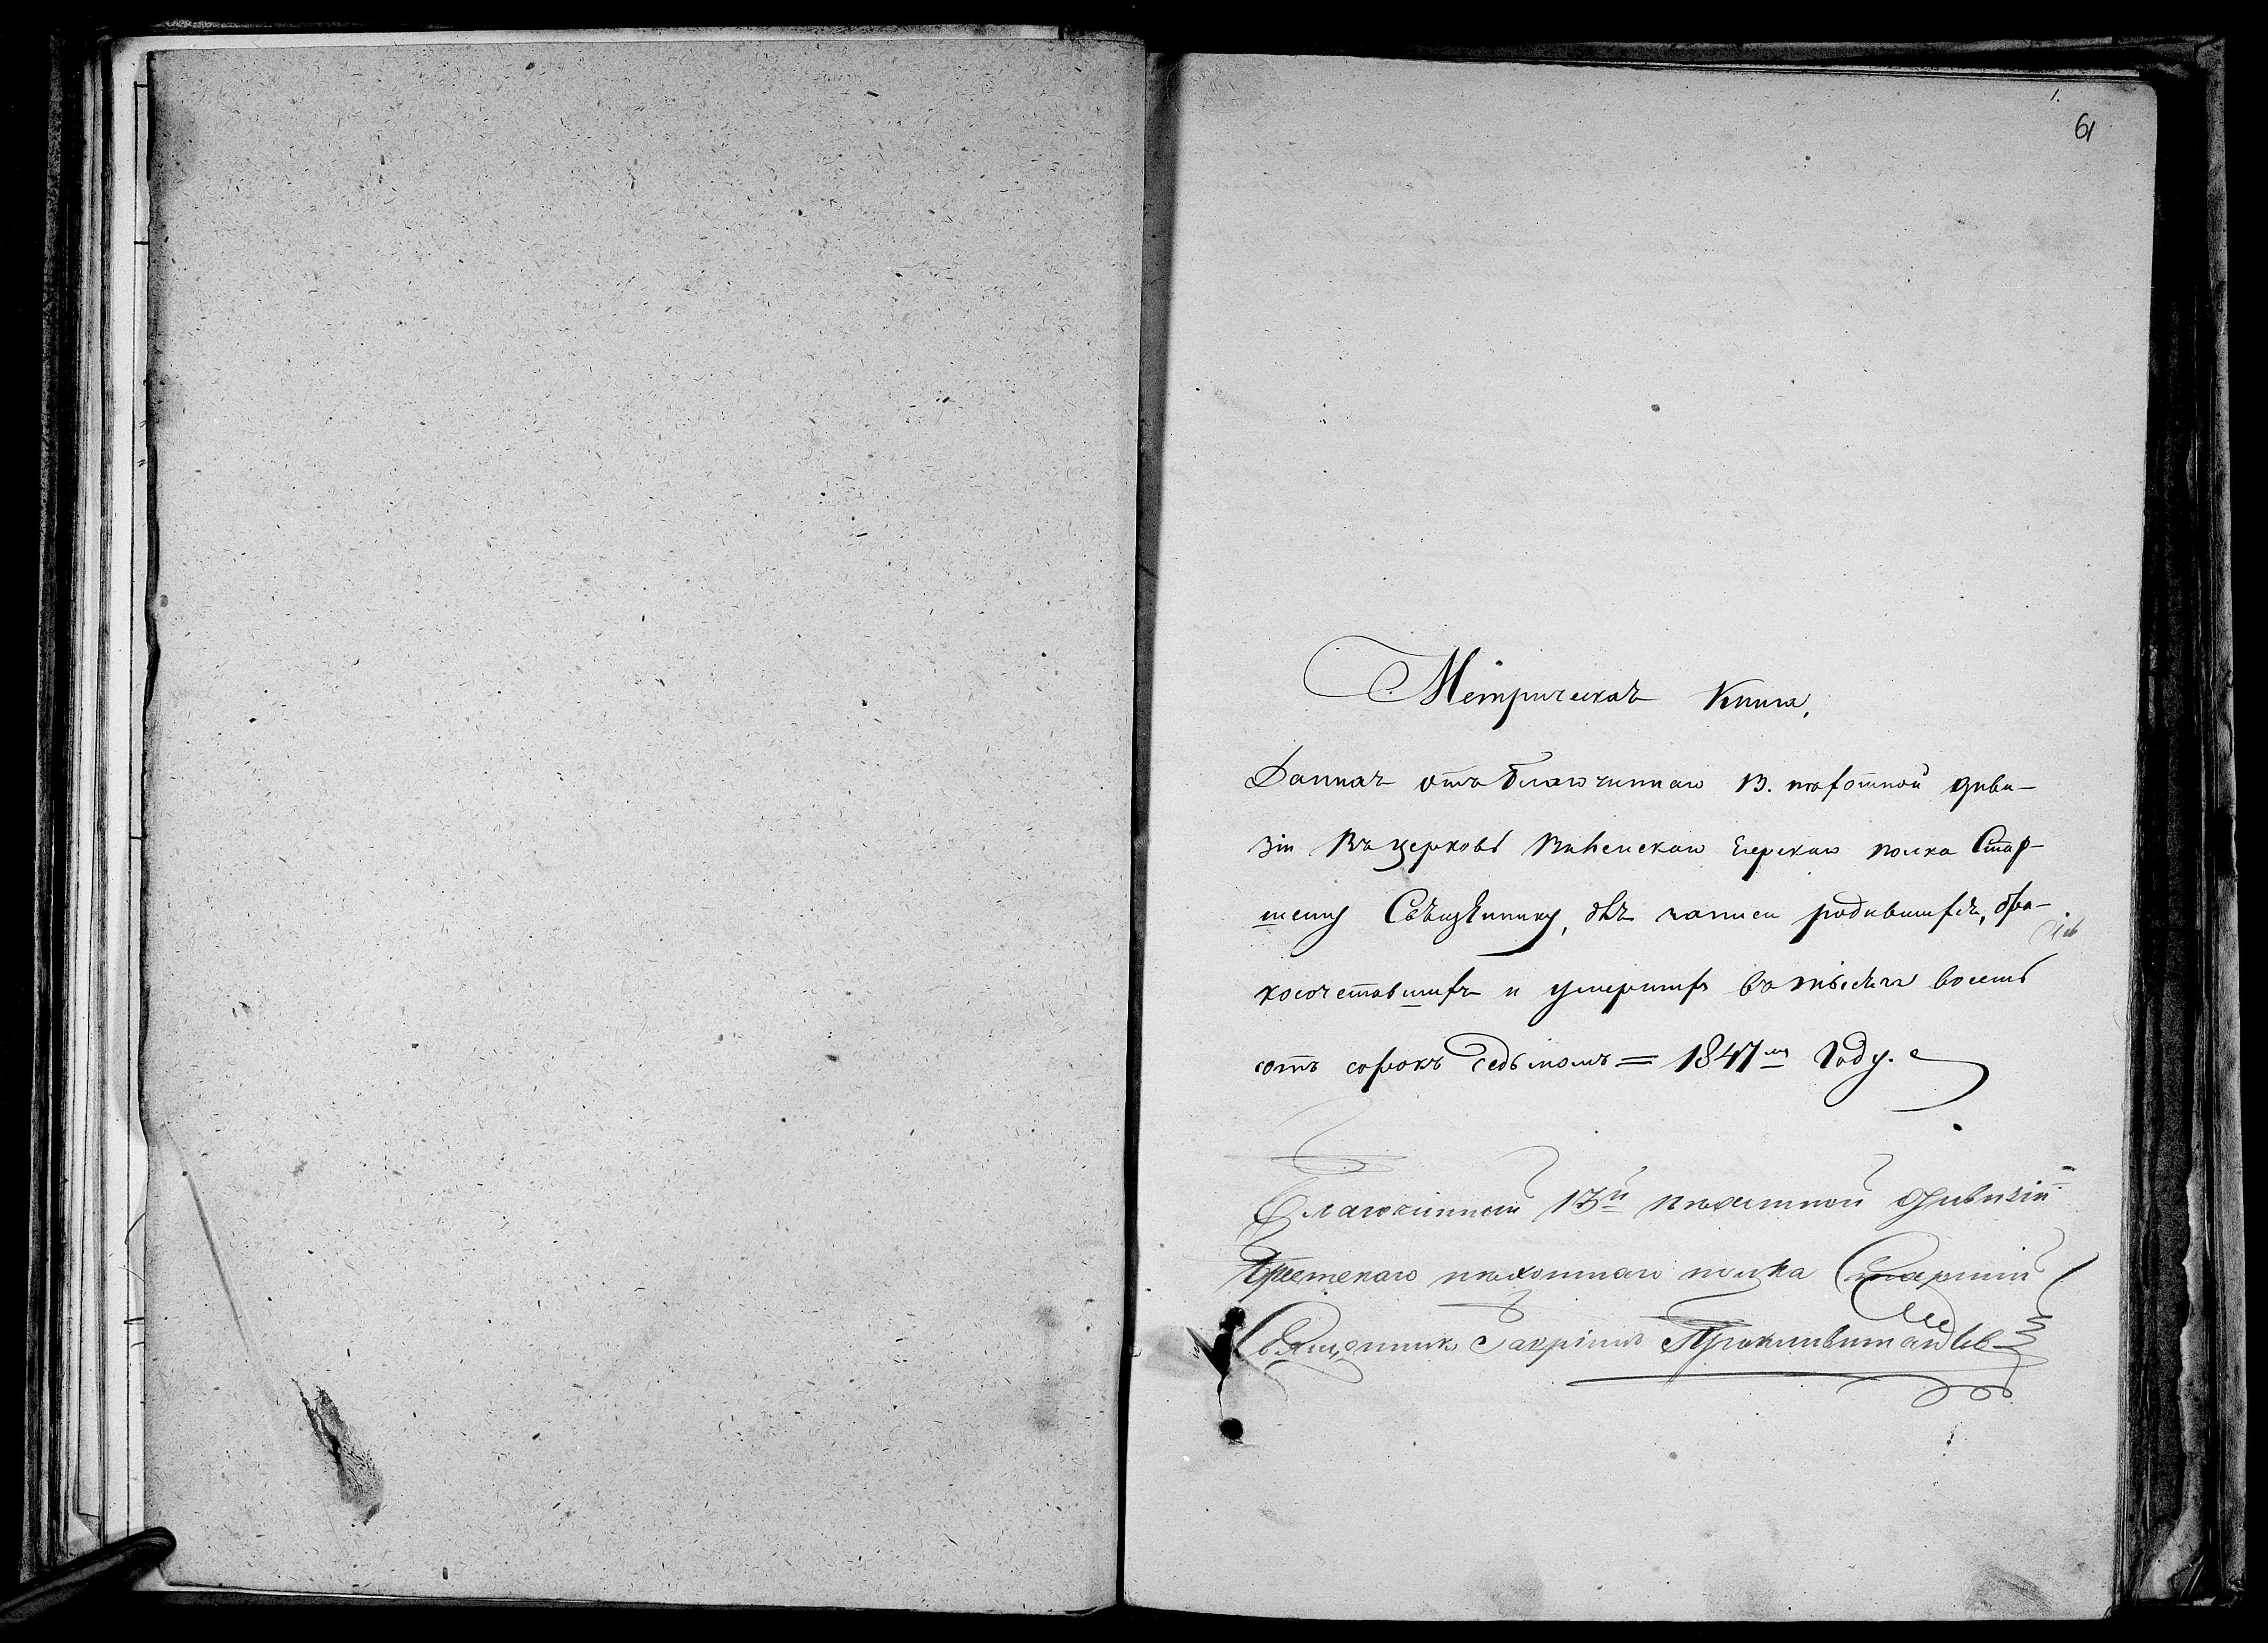 1.
61
Метрическая Книга,
Данная отъ благочиннаго 13. пѣхотной диви-
зіи въ церковь Виленскаго Егерскаго полка Стар-
шему Священнику, для записи родившихся, бра-
косочетавшихъ и умершихъ въ тысяча восемь
сотъ сорокъ седьмомъ = 1847мъ Году.
Благочинный 13й пѣхотной дивизіи
Брестскаго пѣхотнаго полка Старшій
Священникъ